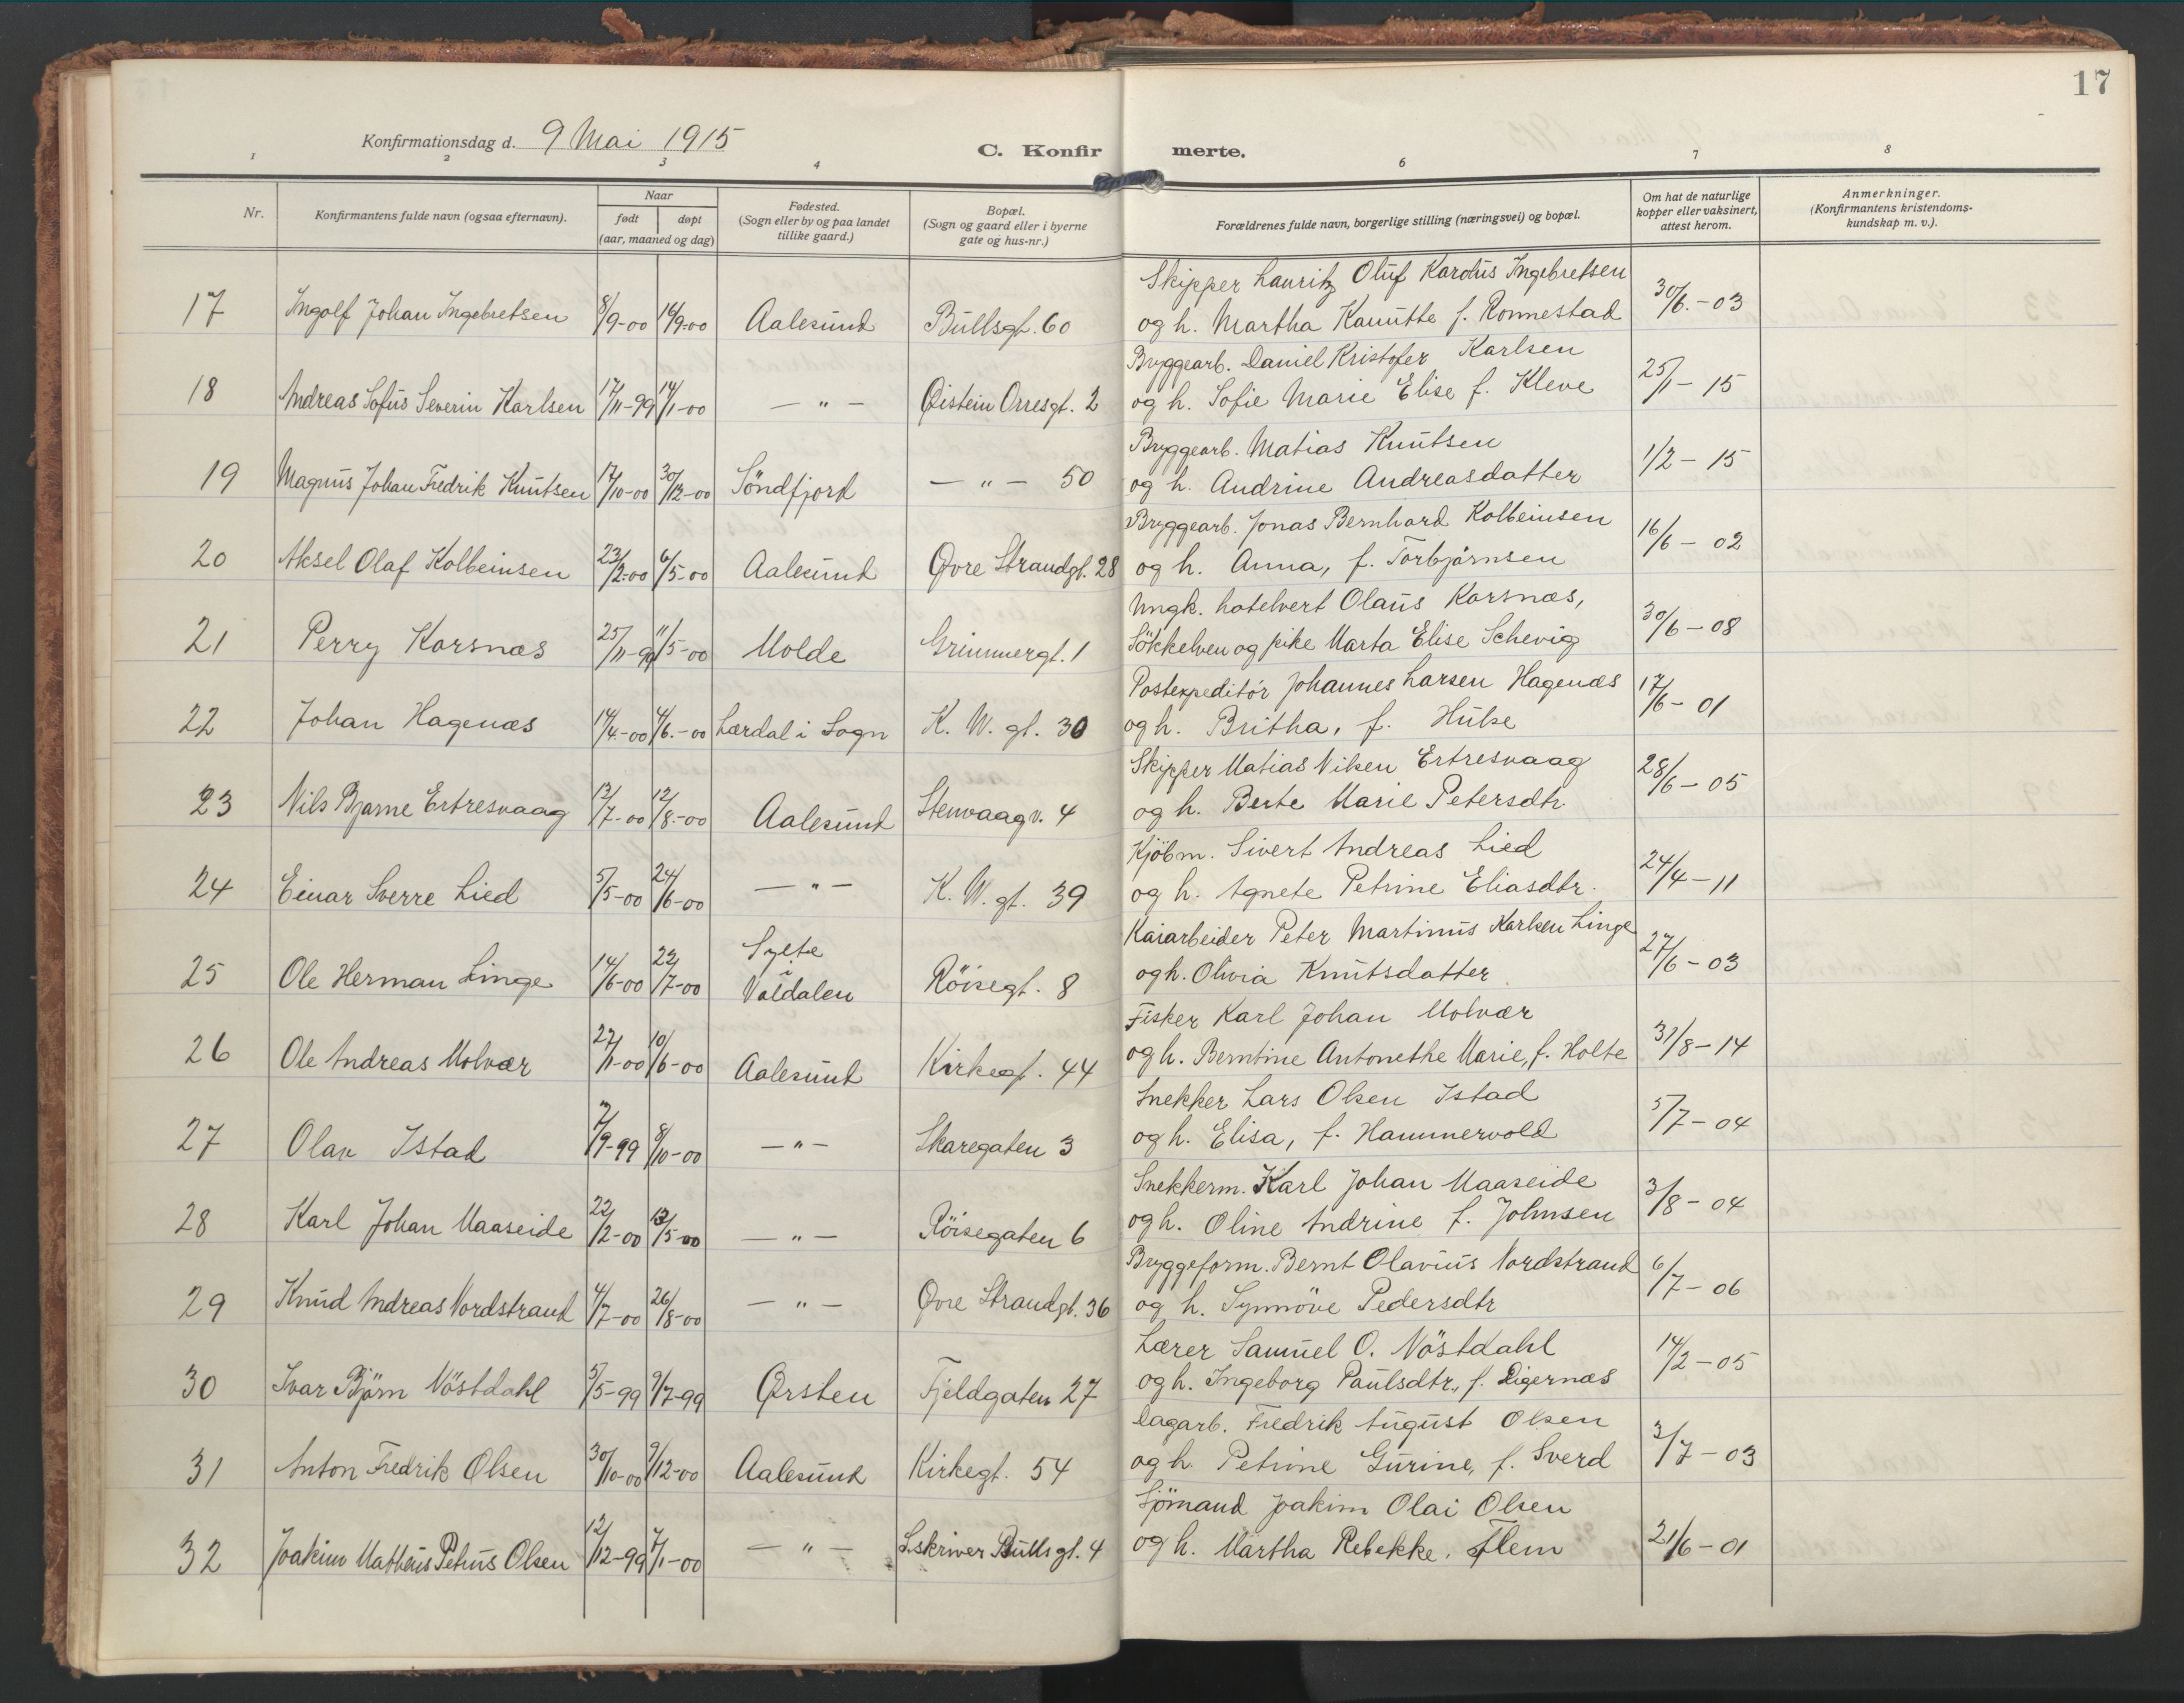 17
Konfirmationsdag d. 9 Mai 1915
C. Konfirmerte.
1 2 3 4 6 7 8
Nr.
Konfirmantens fulde navn (ogsaa efternavn).
Naar
født døpt
(aar, maaned og dag)
Fødested.
(Sogn eller by og paa landet
tillike gaard.)
Bopæl.
(Sogn og gaard eller i byerne
gate og hus-nr.)
Forældrenes fulde navn, borgerlige stilling (næringsvei) og bopæl.
Om hat de naturlige
kopper eller vaksinert,
attest herom.
Anmerkninger.
(Konfirmantens kristendoms-
kundskap m. v.).
Skipper Lauritz Oluf Karolus Ingebretsen
17 Ingolf Johan Ingebretsen 8/9-00 16/9-00 Aalesund Bullsgt. 60 og h. Martha Kanutte f. Ronnestad 30/6-03
Bryggearb. Daniel Kristofer Karlsen
18 Andreas Sofus Severin Karlsen 17/11-99 14/1-00 — " — Øistein Orresgt. 2 og h. Sofie Marie Elise f. Kleve 25/1-15
Bryggearb. Matias Knutsen
19 Magnus Johan Fredrik Knutsen 17/10-00 30/12-00 Söndfjord — " — 50 og h. Andrine Andreasdatter 1/2-15
Bryggearb. Jonas Bernhard Kolbeinsen
20 Aksel Olaf Kolbeinsen 23/2-00 6/5-00 Aalesund Øvre Strandgt. 28 og h. Anna, f. Torbjörnsen 16/6-02
Ungk. hotelvert Olaus Korsnæs,
21 Perry Korsnæs 25/11-99 11/5-00 Molde Grimmergt. 1 Sökkelven og pike Marta Elise Schevig 30/6-08
Postexpeditör Johannes Larsen Hagenæs
22 Johan Hagenæs 14/4-00 4/6-00 Lærdal i Sogn K. W. gt. 30 og h. Britha, f. Hulse 17/6-01
Skipper Matias Nilsen Ertresvaag
23 Nils Bjarne Ertresvaag 13/7-00 12/8-00 Aalesund Stenvaagv. 4 og h. Berte Marie Petersdtr. 28/6-05
Kjöbm. Sivert Andreas Lied
24 Einar Sverre Lied 5/5-00 24/6-00 — " — K. W. gt. 39 og h. Agnete Petrine Eliasdtr. 24/4-11
Kaiarbeider Peter Martinus Karlsen Linge
25 Ole Herman Linge 14/6-00 22/7-00 Sylte i Valdalen Röisegt. 8 og h. Olivia Knutsdatter 27/6-03
Fisker Karl Johan Molvær
26 Ole Andreas Molvær 27/1-00 10/6-00 Aalesund Kirkegt. 44 og h. Berntine Antonethe Marie, f. Holte 31/8-14
Snekker Lars Olsen Istad
27 Olav Istad 7/9-99 8/10-00 — " — Skaregaten 3 og h. Elisa, f. Hammervold 5/7-04
Snekkerm. Karl Johan Maaseide
28 Karl Johan Maaseide 22/2-00 13/5-00 — " — Röisegaten 6 og h. Oline Andrine f. Johnsen 3/8-04
Bryggeform. Bernt Olavius Nordstrand
29 Knud Andreas Nordstrand 4/7-00 26/8-00 — " — Øvre Strandgt. 36 og h. Synnöve Pedersdtr 6/7-06
Lærer Samuel O. Nöstdahl
30 Ivar Björn Nöstdahl 5/5-99 9/7-99 Ørsten Fjeldgaten 27 og h. Ingeborg Paulsdtr., f. Digernæs 14/2-05
Dagarb. Fredrik August Olsen
31 Anton Fredrik Olsen 30/10-00 9/12-00 Aalesund Kirkegt. 54 og h. Petrine Gurine, f. Sverd 3/7-03
Sjömand Joakim Olai Olsen
32 Joakim Mathæus Petrus Olsen 12/12-99 7/1-00 — " — S.skriver Bullsgt. 4 og h. Martha Rebekke. Flem 21/6-01